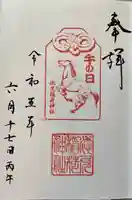 奉拝
午の日
令和五年
六月十七日丙午